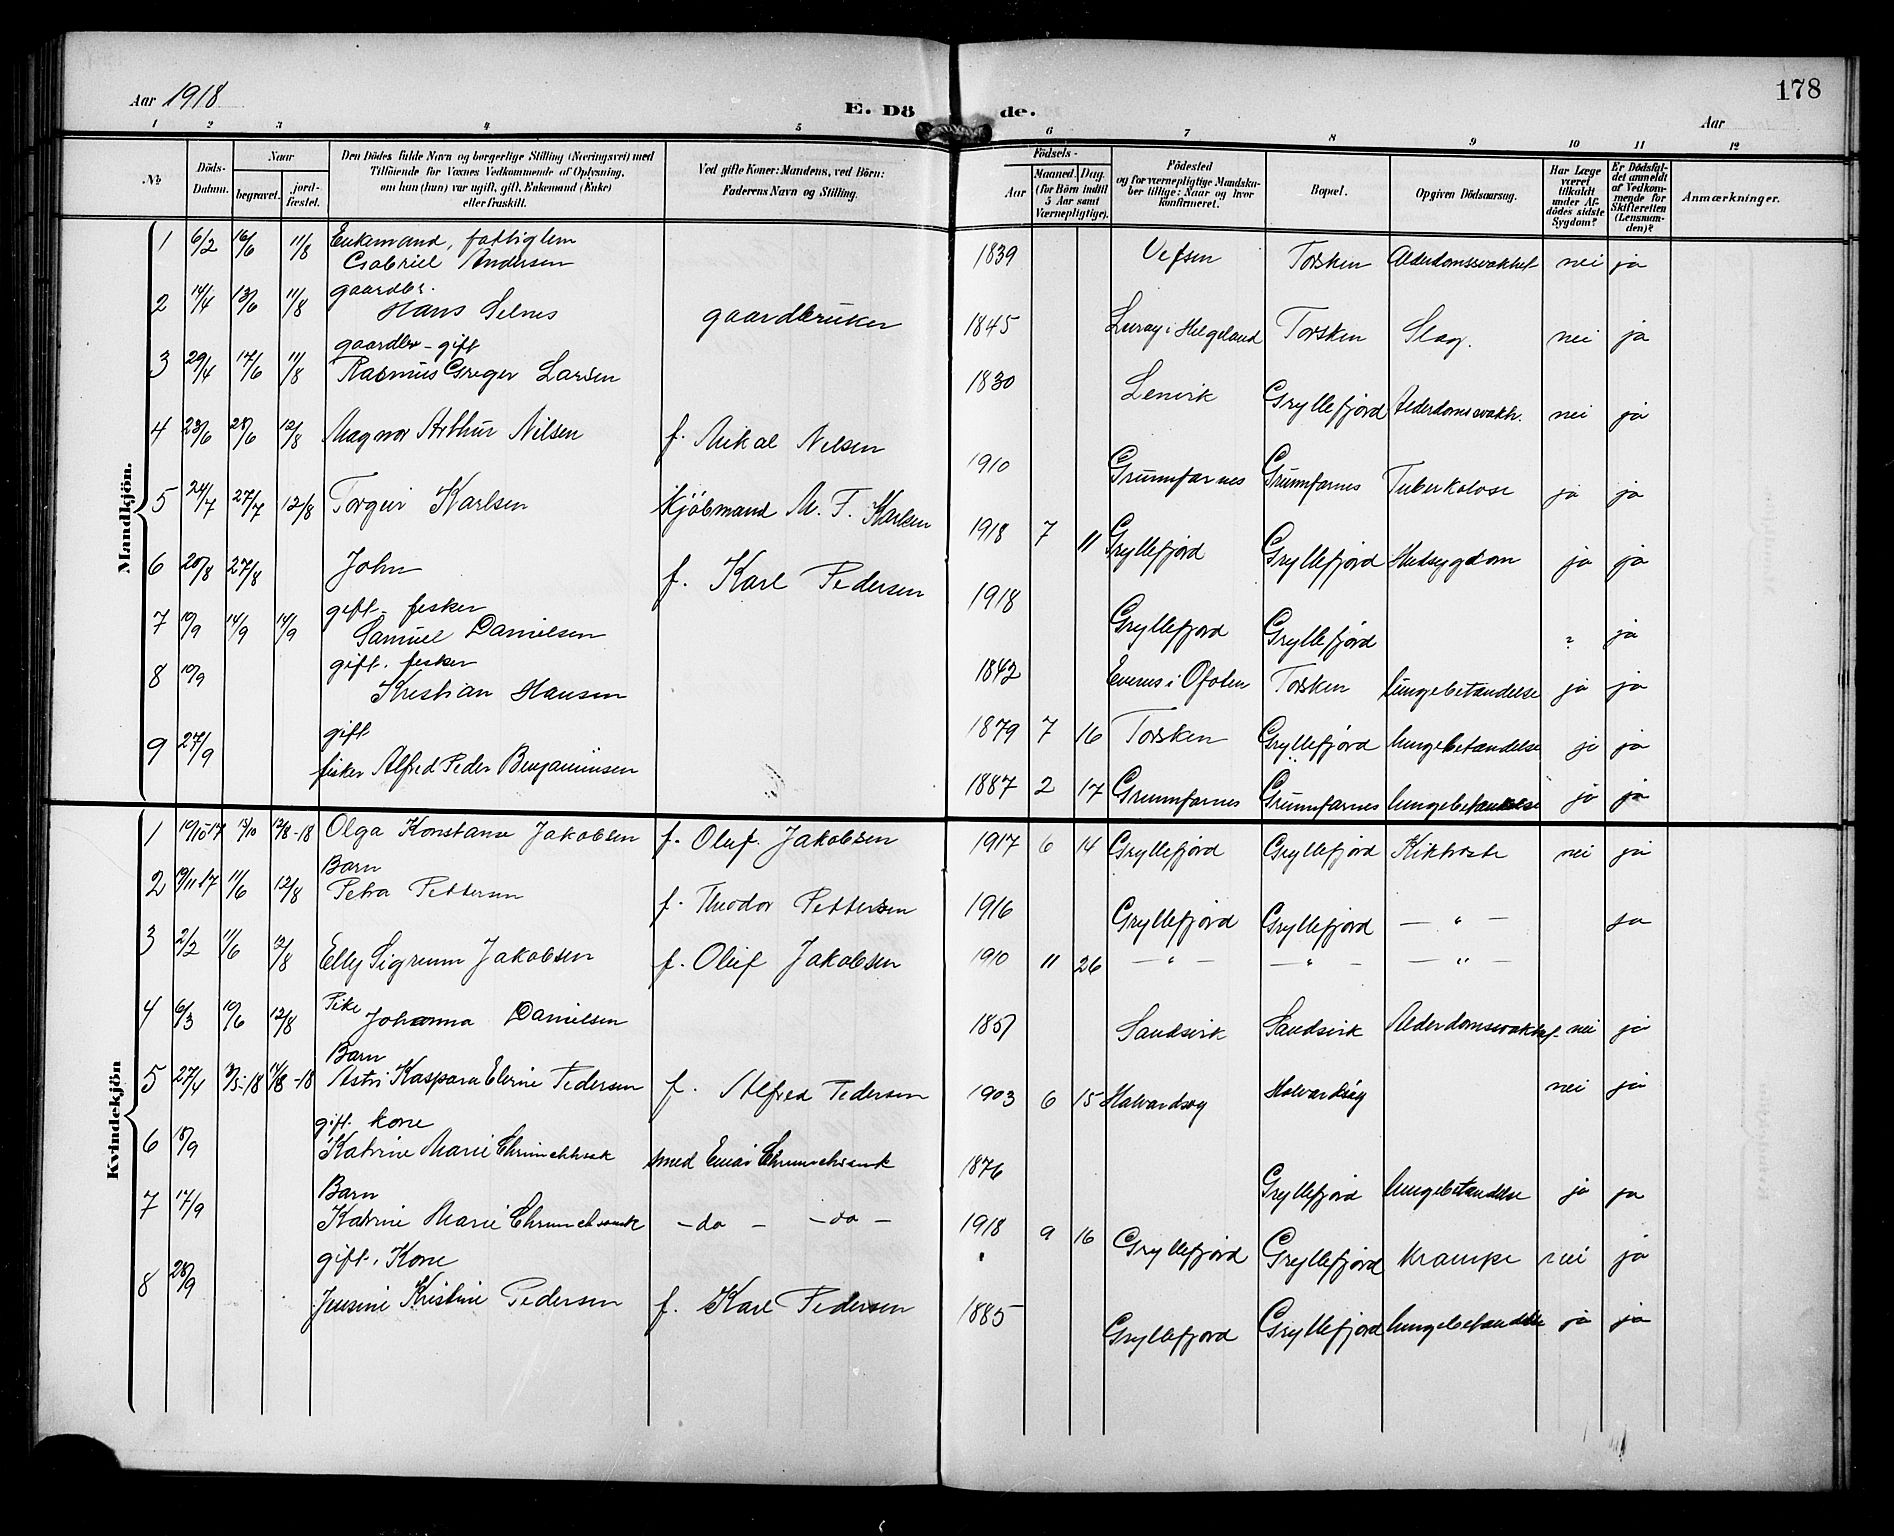 Aar 1918
E. Dö de.
178
Aar
1 2 3 4 5 6 7 8 9 10 11 12
№
Döds-Datum.
Naar
begravet.
jord-fæstet.
Den Dödes fulde Navn og borgerlige Stilling (Næringsvei) med
Tilföiende for Voxnes Vedkommende af Oplysning,
om han (hun) var ugift, gift, Enkemand (Enke)
eller fraskilt.
Ved gifte Koner: Mandens, ved Börn:
Faderens Navn og Stilling.
Födsels-
Aar
Maaned. Dag.
(for Börn indtil
5 Aar samt
Værnepligtige).
Födested
og for værnepligtige Mandsku-
ber tillige: Naar og hvor
konfirmeret.
Bopæl.
Opgiven Dödsaarsag.
Har Læge
været
tilkaldt
under Af-
dödes sidste
Sygdom?
Er Dödsfal-
det anmeldt
af Vedkom-
mende for
Skifteretten
(Lensman-
den)?
Anmærkninger.
Mandkjön.
1 6/2 16/6 11/8 Enkemand, fattiglem
Gabriel Andersen 1839 Vefsen Torsken Alderdomssvakhet nei ja
2 14/4 13/6 11/8 gaardbr.
Hans Selnes gaardbruker 1845 Luröy i Helgeland Torsken Slag. nei ja
3 29/4 17/6 11/8 gaardbr - gift
Rasmus Greger Larsen 1830 Lenvik Gryllefjord Alderdomssvakh. nei ja
4 23/6 28/6 12/8 Magnor Arthur Nilsen f. Mikal Nilsen 1910 Grunnfarnes Grunnfarnes Tuberkolose ja ja
5 24/7 27/7 12/8 Torgeir Karlsen Kjöbmand M. F. Karlsen 1918 7 11 Gryllefjord Gryllefjord ja ja
6 20/8 27/8 John f. Karl Pedersen 1918 Gryllefjord Gryllefjord ? ja
7 10/9 14/9 14/9 gift - fisker
Samuel Danielsen 1842 Evenes i Ofoten Torsken lungebetændelse ja ja
8 10/9 gift. fisker
Kristian Hansen 1879 7 16 Torsken Gryllefjord lungebetændelse ja ja
9 27/9 gift
fisker Alfred Peder Benjaminsen 1887 2 17 Grunnfarnes Grunnfarnes lungebetændelse ja ja
Kvindekjön
1 10/10 17 12/8-18 Olga Konstanse Jakobsen f. Oluf Jakobsen 1917 6 14 Gryllefjord Gryllefjord Kikhoste nei ja
2 19/11 17 11/6 12/8 Barn
Petra Pettersen f. Theodor Pettersen 1916 Gryllefjord Gryllefjord — " — ja
3 2/2 11/6 12/8 Elly Sigrunn Jakobsen f. Oluf Jakobsen 1910 11 26 — " — — " — — " —
4 6/3 10/6 12/8 Pike
Johanna Danielsen 1857 Sandsvik Sandsvik Alderdomssvakhet nei ja
5 27/4 14/8-18 Barn
Astri Kaspara Elerine Pedersen f. Alfred Pedersen 1903 6 15 Halvardsøy Halvardsøy nei ja
6 18/9 gift. kone
Katrine Marie smed Einar 1876 Gryllefjord lungebetændelse ja ja
7 17/9 Barn
Katrine Marie — do — — do — 1918 9 16 Gryllefjord Gryllefjord Krampe nei ja
8 28/9 gift. Kone
Jensine Kristine Pedersen f. Karl Pedersen 1885 Gryllefjord Gryllefjord lungebetændelse ja ja